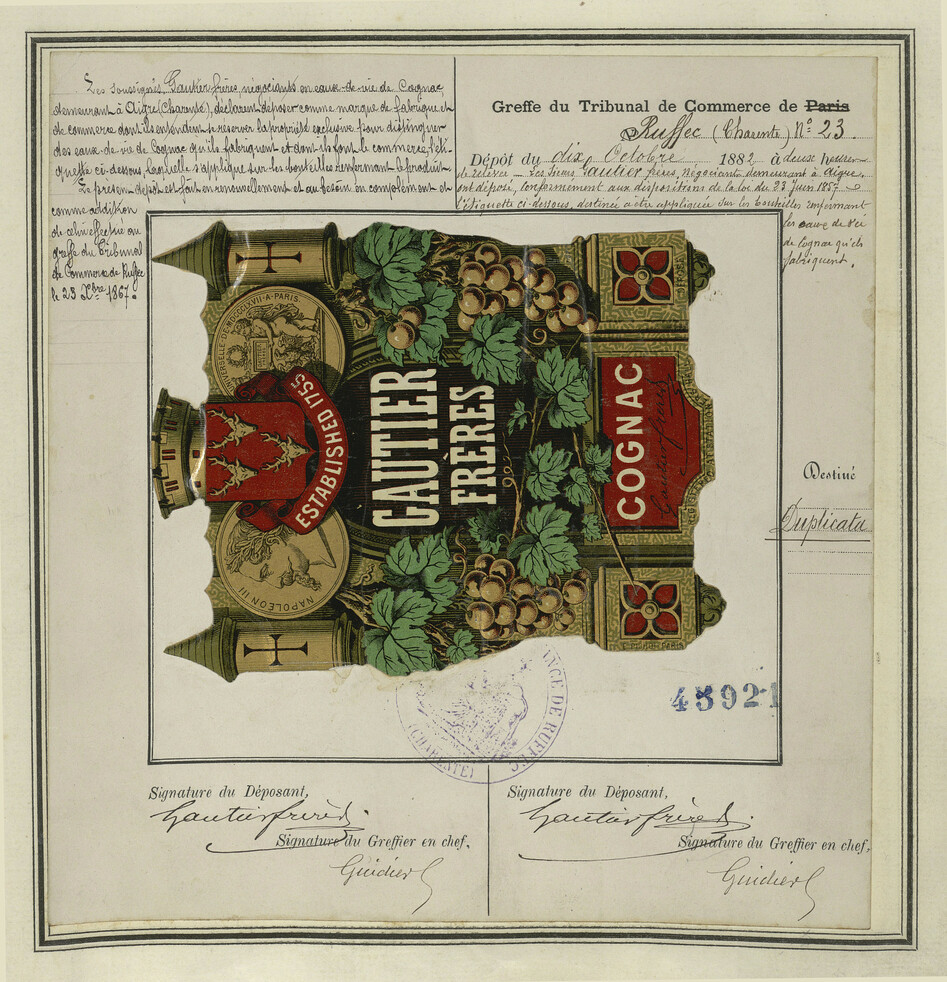 Les soussignés, Gautier frères, négociants en eaux-de-vie de Cognac,
demeurant à Aigre (Charente), déclarent déposer comme marque de fabrique et
de commerce dont ils entendent se réserver la propriété exclusive pour distinguer
des eaux-de-vie de Cognac qu'ils fabriquent et dont ils font le commerce, l'éti-
quette ci-dessous laquelle s'applique sur les bouteilles renfermant le produit.
Le présent dépôt est fait en renouvellement et au besoin en complément et
comme addition
de celui effectué au
greffe du Tribunal
de Commerce de Ruffec
le 23 Xbre 1867.
Greffe du Tribunal de Commerce de Paris
Ruffec (Charente) No 23.
Dépôt du dix Octobre 1882 à deux heures
de relevée - Les sieurs Gautier frères, négociants demeurant à Aigre,
ont déposé, conformément aux dispositions de la loi du 23 Juin 1857
l'étiquette ci-dessous, destinée a être appliquée sur les bouteilles renfermant
les eaux de vie
de Cognac qu'ils
fabriquent.
UNIVERSELLE DE MDCCCLXVII A PARIS
ESTABLISHED 1755
NAPOLEON III
GAUTIER
FRÈRES
COGNAC
Gautier frères
Destiné
Duplicata
45921
INCE DE RUFFEC
(CHARENTE)
Signature du Déposant,
Gautier frères
Signature du Greffier en chef,
Guidier
Signature du Déposant,
Gautier frères
Signature du Greffier en chef,
Guidier